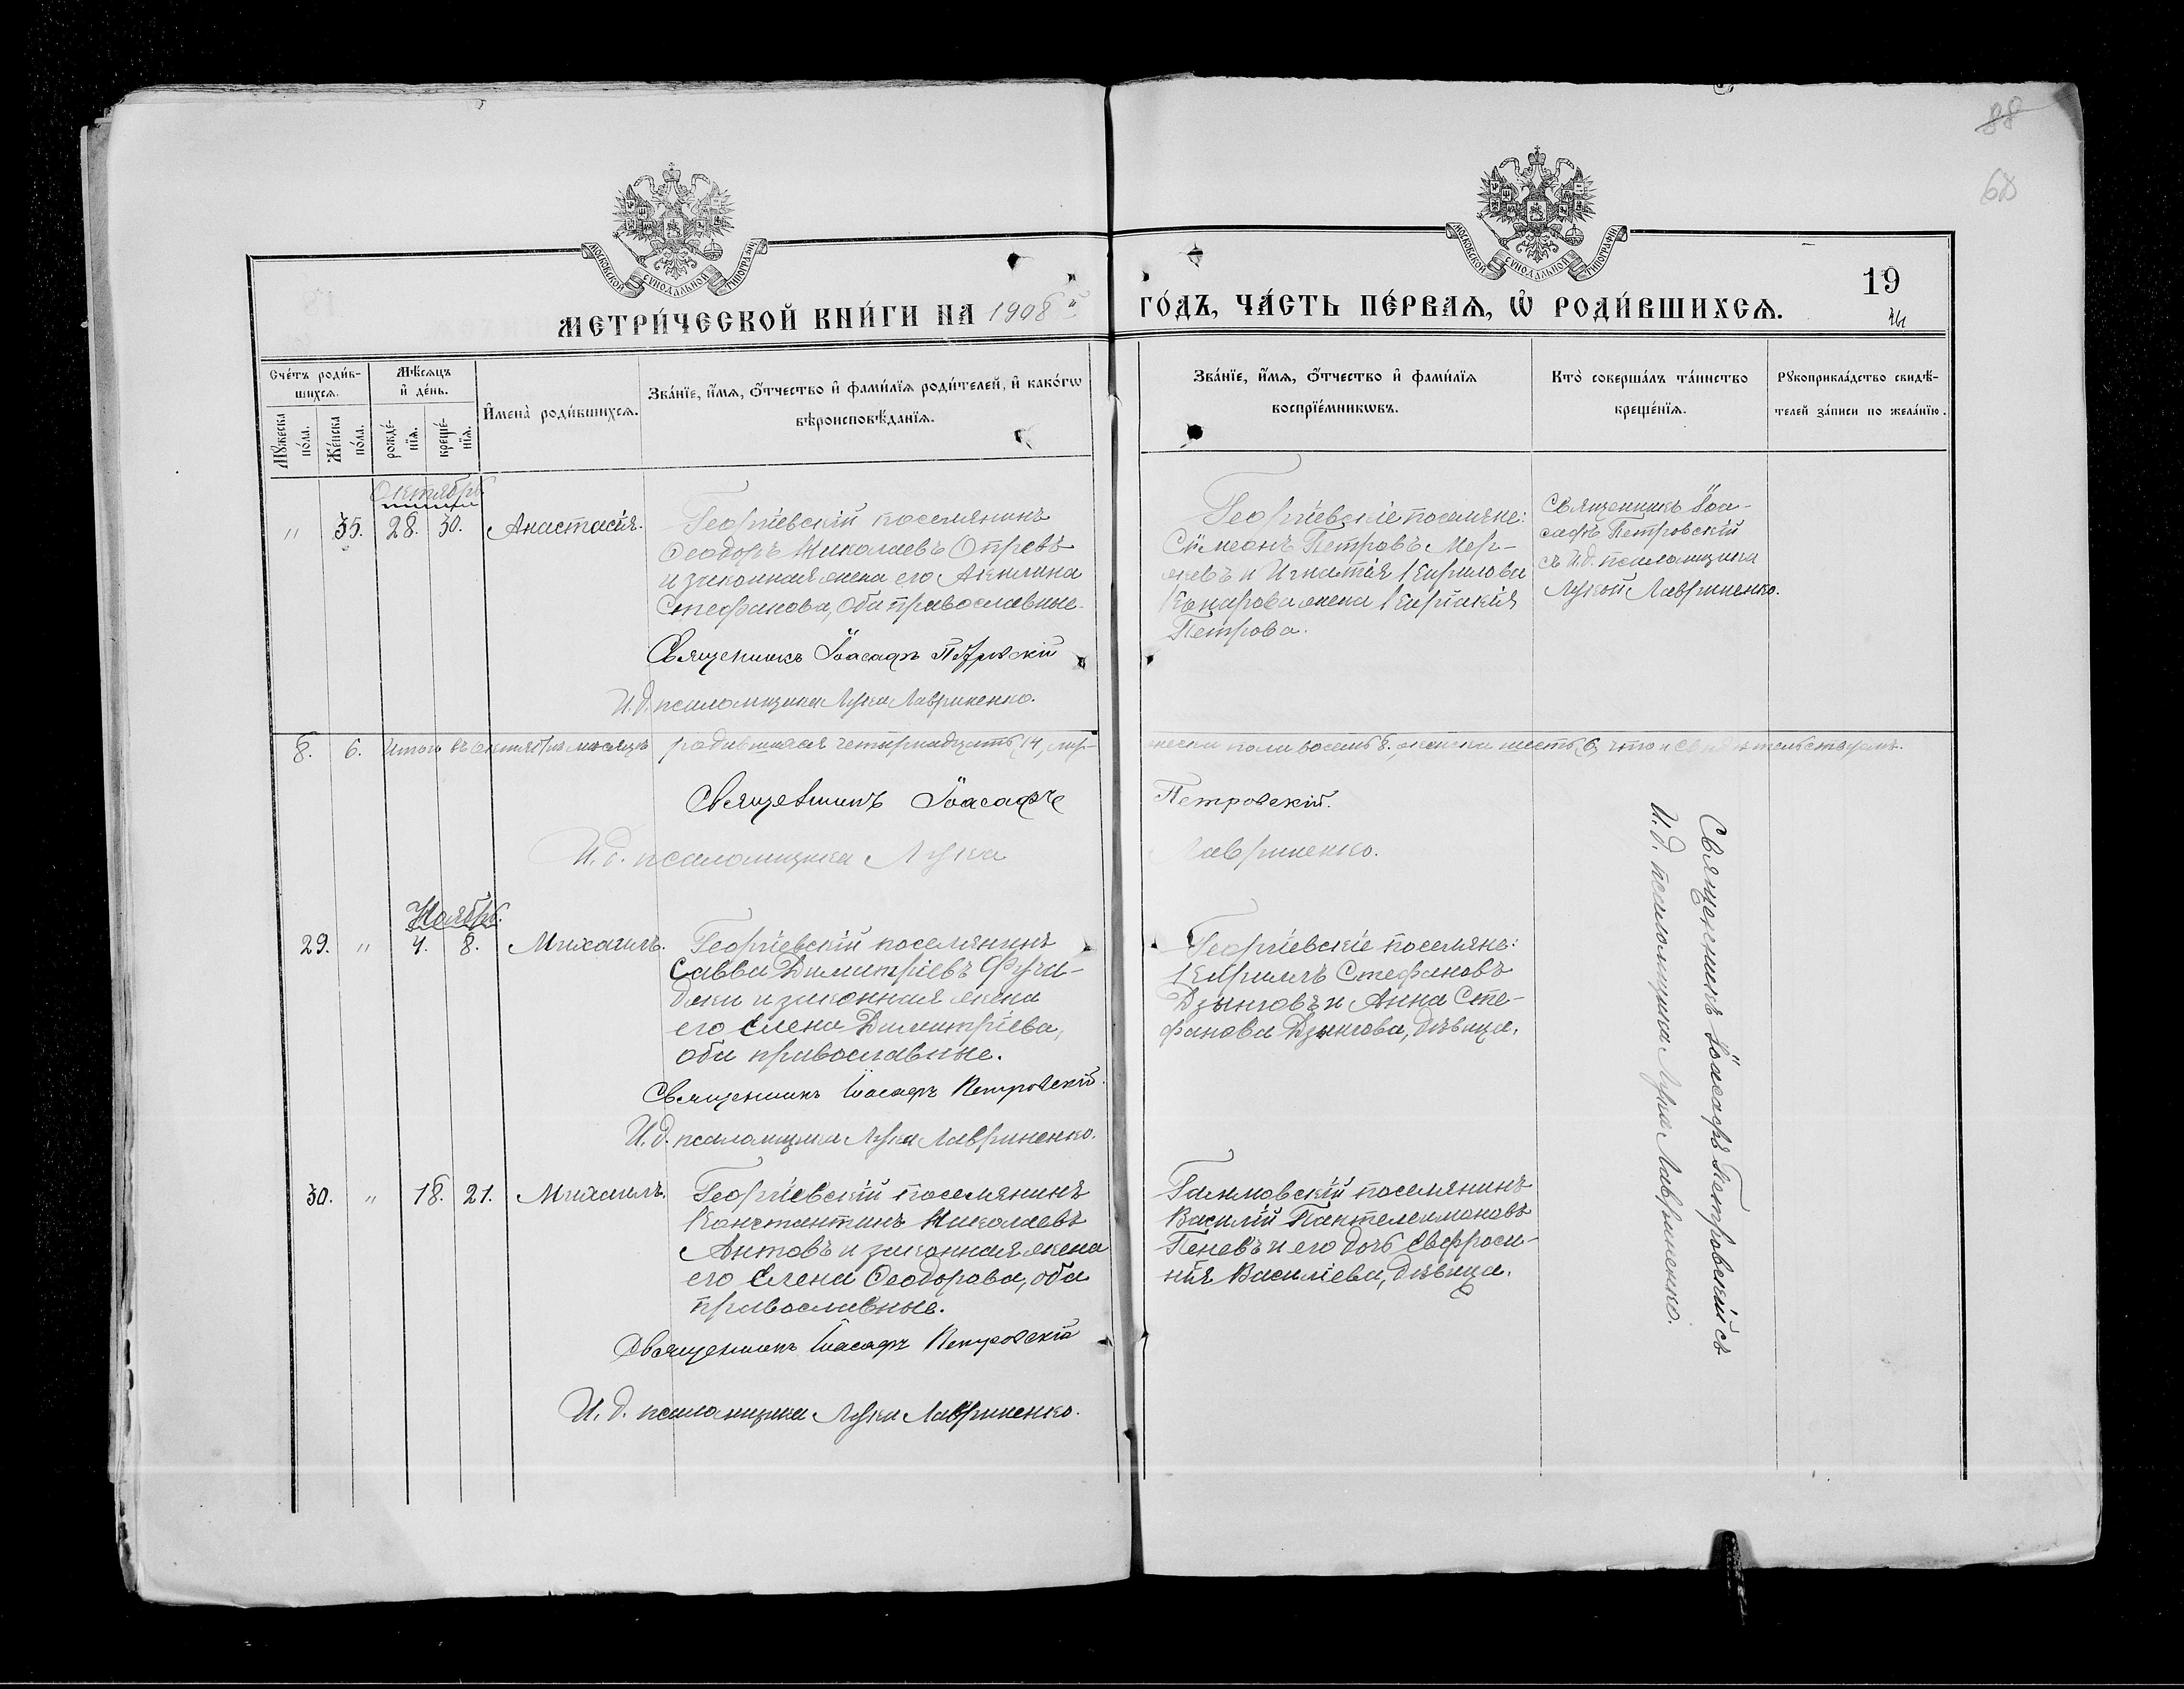 88
68
МОСКОВСКОЙ СѴНОДАЛЬНОЙ ТИПОГРАФІИ
МОСКОВСКОЙ СѴНОДАЛЬНОЙ ТИПОГРАФІИ
МЕТРИ́ЧЕСКОЙ КНИ́ГИ НА 1908й ГО́ДЪ, ЧА́СТЬ ПЕ́РВАѦ, Ѽ РОДИ́ВШИХСѦ.
19
Сче́тъ роди́в-
шихсѧ.
Мꙋ́жеска
по́ла.
Же́нска
по́ла.
Мѣ́сѧцъ
и҆ де́нь.
рожде́-
нїѧ.
креще́-
нїѧ.
И҆мена̀ роди́вшихсѧ.
Зва́нїе, и҆́мѧ, ѻ҆́тчество и҆ фами́лїѧ роди́телей, и҆ како́гѡ
вѣроисповѣ́данїѧ.
Зва́нїе, и҆́мѧ, ѻ҆́тчество и҆ фами́лїѧ
воспрїе́мникѡвъ.
Кто̀ соверша́лъ та́инство
креще́нїѧ.
Рꙋкоприкла́дство свидѣ́-
телей за́писи по жела́нїю.
Октябрь
" 35. 28. 30. Анастасія.
Георгіевскій поселянинъ
Ѳеодоръ Николаевъ Опревъ
и законная жена его Акилина
Стефанова, оба православные.
Священникъ Іоасафъ Петровскій
И.д. псаломщика Лука Лавриненко.
Георгіевскіе поселяне:
Сѵмеонъ Петровъ Мер-
жевъ и Игнатія Кирилова
Канарова жена Киріакія
Петрова.
Священникъ Іоа-
сафъ Петровскій
съ И.д. псаломщика
Лукой Лавриненко.
8. 6. Итого въ октябрѣ мѣсяцѣ родившихся четырнадцать 14, муж-
жеска пола восемь 8, женска шесть 6, что и свидѣтельствуемъ.
Священникъ Іоасафъ Петровскій.
И.д. псаломщика Лука Лавриненко.
Ноябрь.
29. " 4. 8. Михаилъ.
Георгіевскій поселянинъ
Савва Димитріевъ Фучи-
джи и законная жена
его Елена Димитріева,
оба православные.
Священникъ Іоасафъ Петровскій.
И.д. псаломщика Лука Лавриненко.
Георгіевскіе поселяне:
Кириллъ Стефановъ
Дзынговъ и Анна Сте-
фанова Дзынгова, дѣвица.
Священникъ Іоасафъ Петровскій съ
И.д. псаломщика Лука Лавриненко.
30. " 18. 21. Михаилъ.
Георгіевскій поселянинъ
Константинъ Николаевъ
Антовъ и законная жена
его Елена Ѳеодорова, оба
православные.
Священникъ Іоасафъ Петровскій
И.д. псаломщика Лука Лавриненко.
поселянинъ
Василій Пантелеимоновъ
Пеневъ и его дочь Евфроси-
нія Василіева, дѣвица.